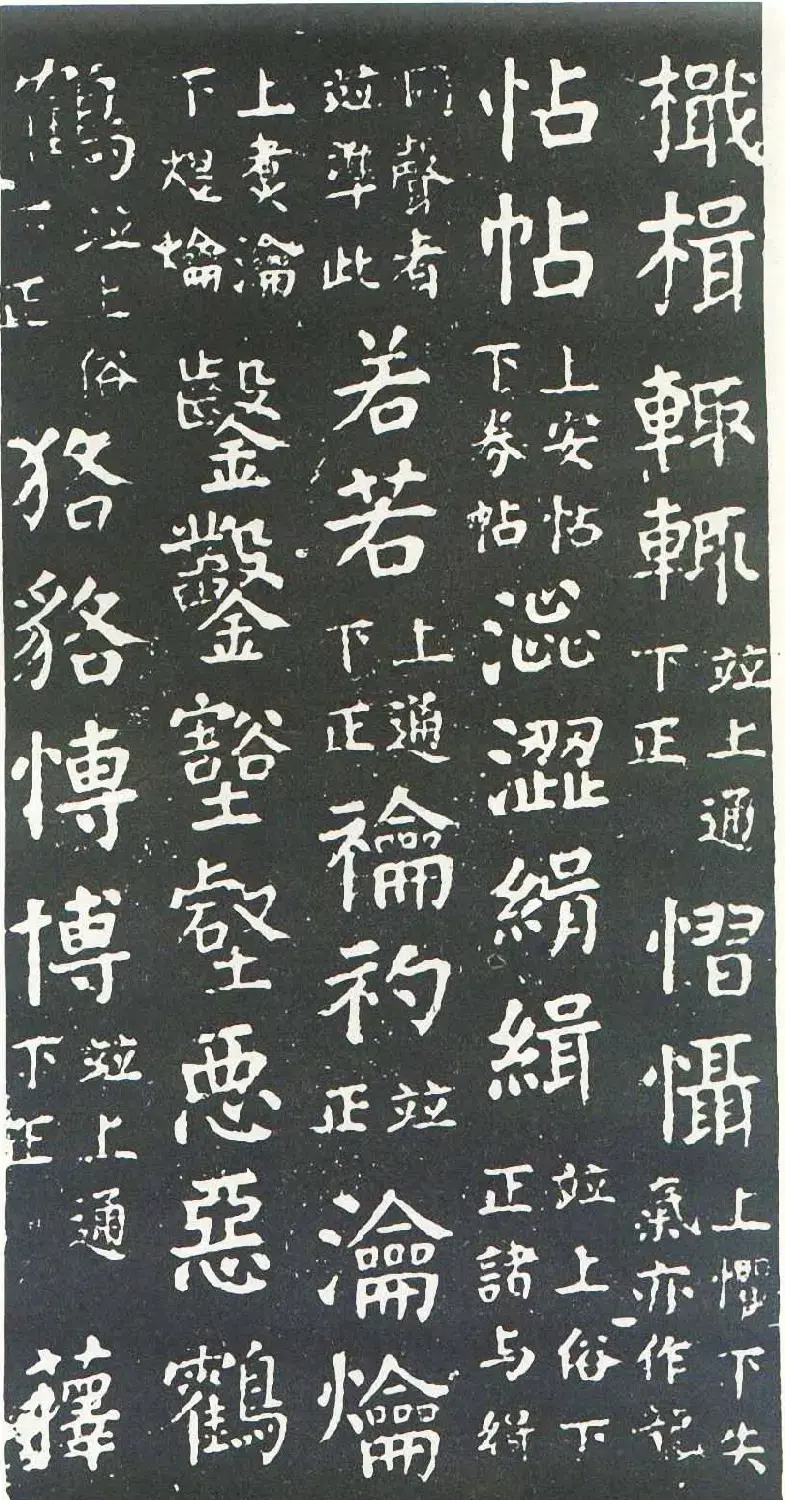 檝楫輙輒並上通下正慴懾上懼下失氣亦作
怗帖上安怗下券帖澁澀緝緝並上俗下正諸与緝
同聲者並準此若若上通下正禴礿並正瀹爚
上煑瀹下煜爚鑿鑿壑壑悪惡鶴
鶴並上俗下正狢貉愽博並上通下正蘀